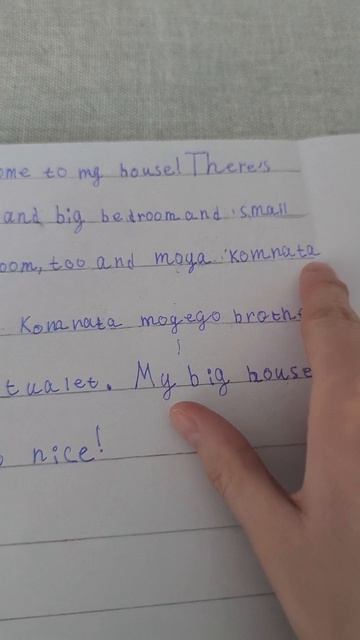 ome to my house! There's
and big bedroom and small
oom, too and moya komnata
Komnata moyego broth
tualet. My big house
nice!